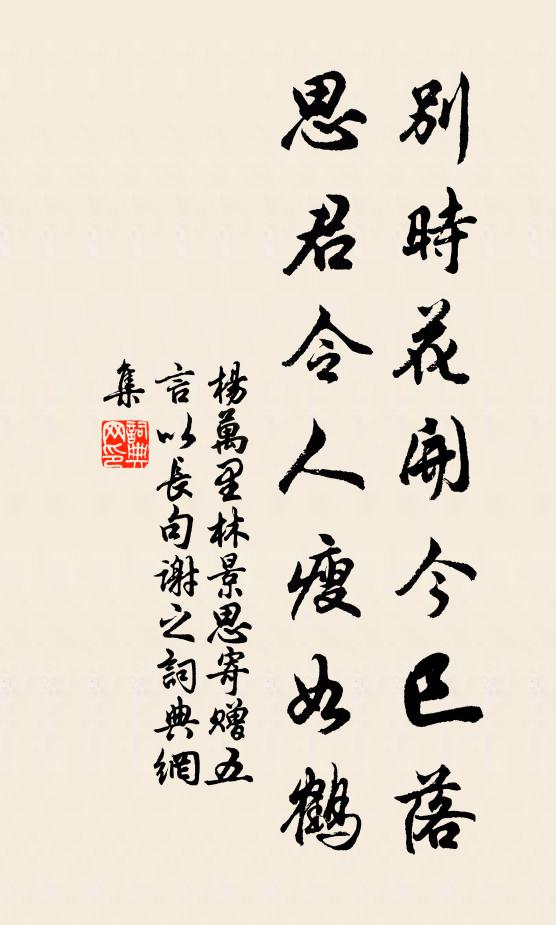 別時花開今已落
思君令人瘦如鶴
楊萬里林景思寄贈五
言以長句謝之詞典網
集
詞典
网印